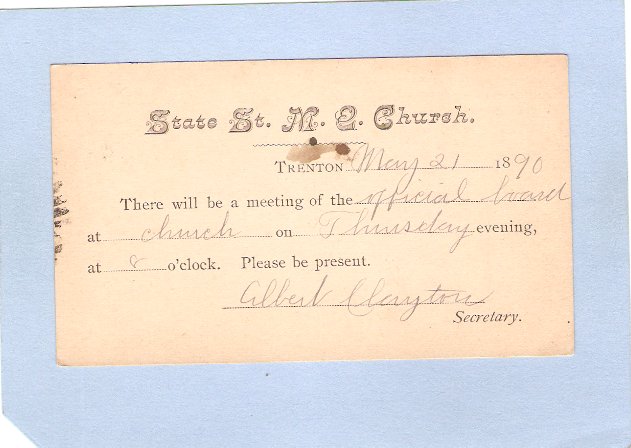 State St. M. E. Church.
Trenton May 21 1890
There will be a meeting of the official board
at church on Thursday evening,
at 8 o'clock. Please be present.
Albert Clayton
Secretary.